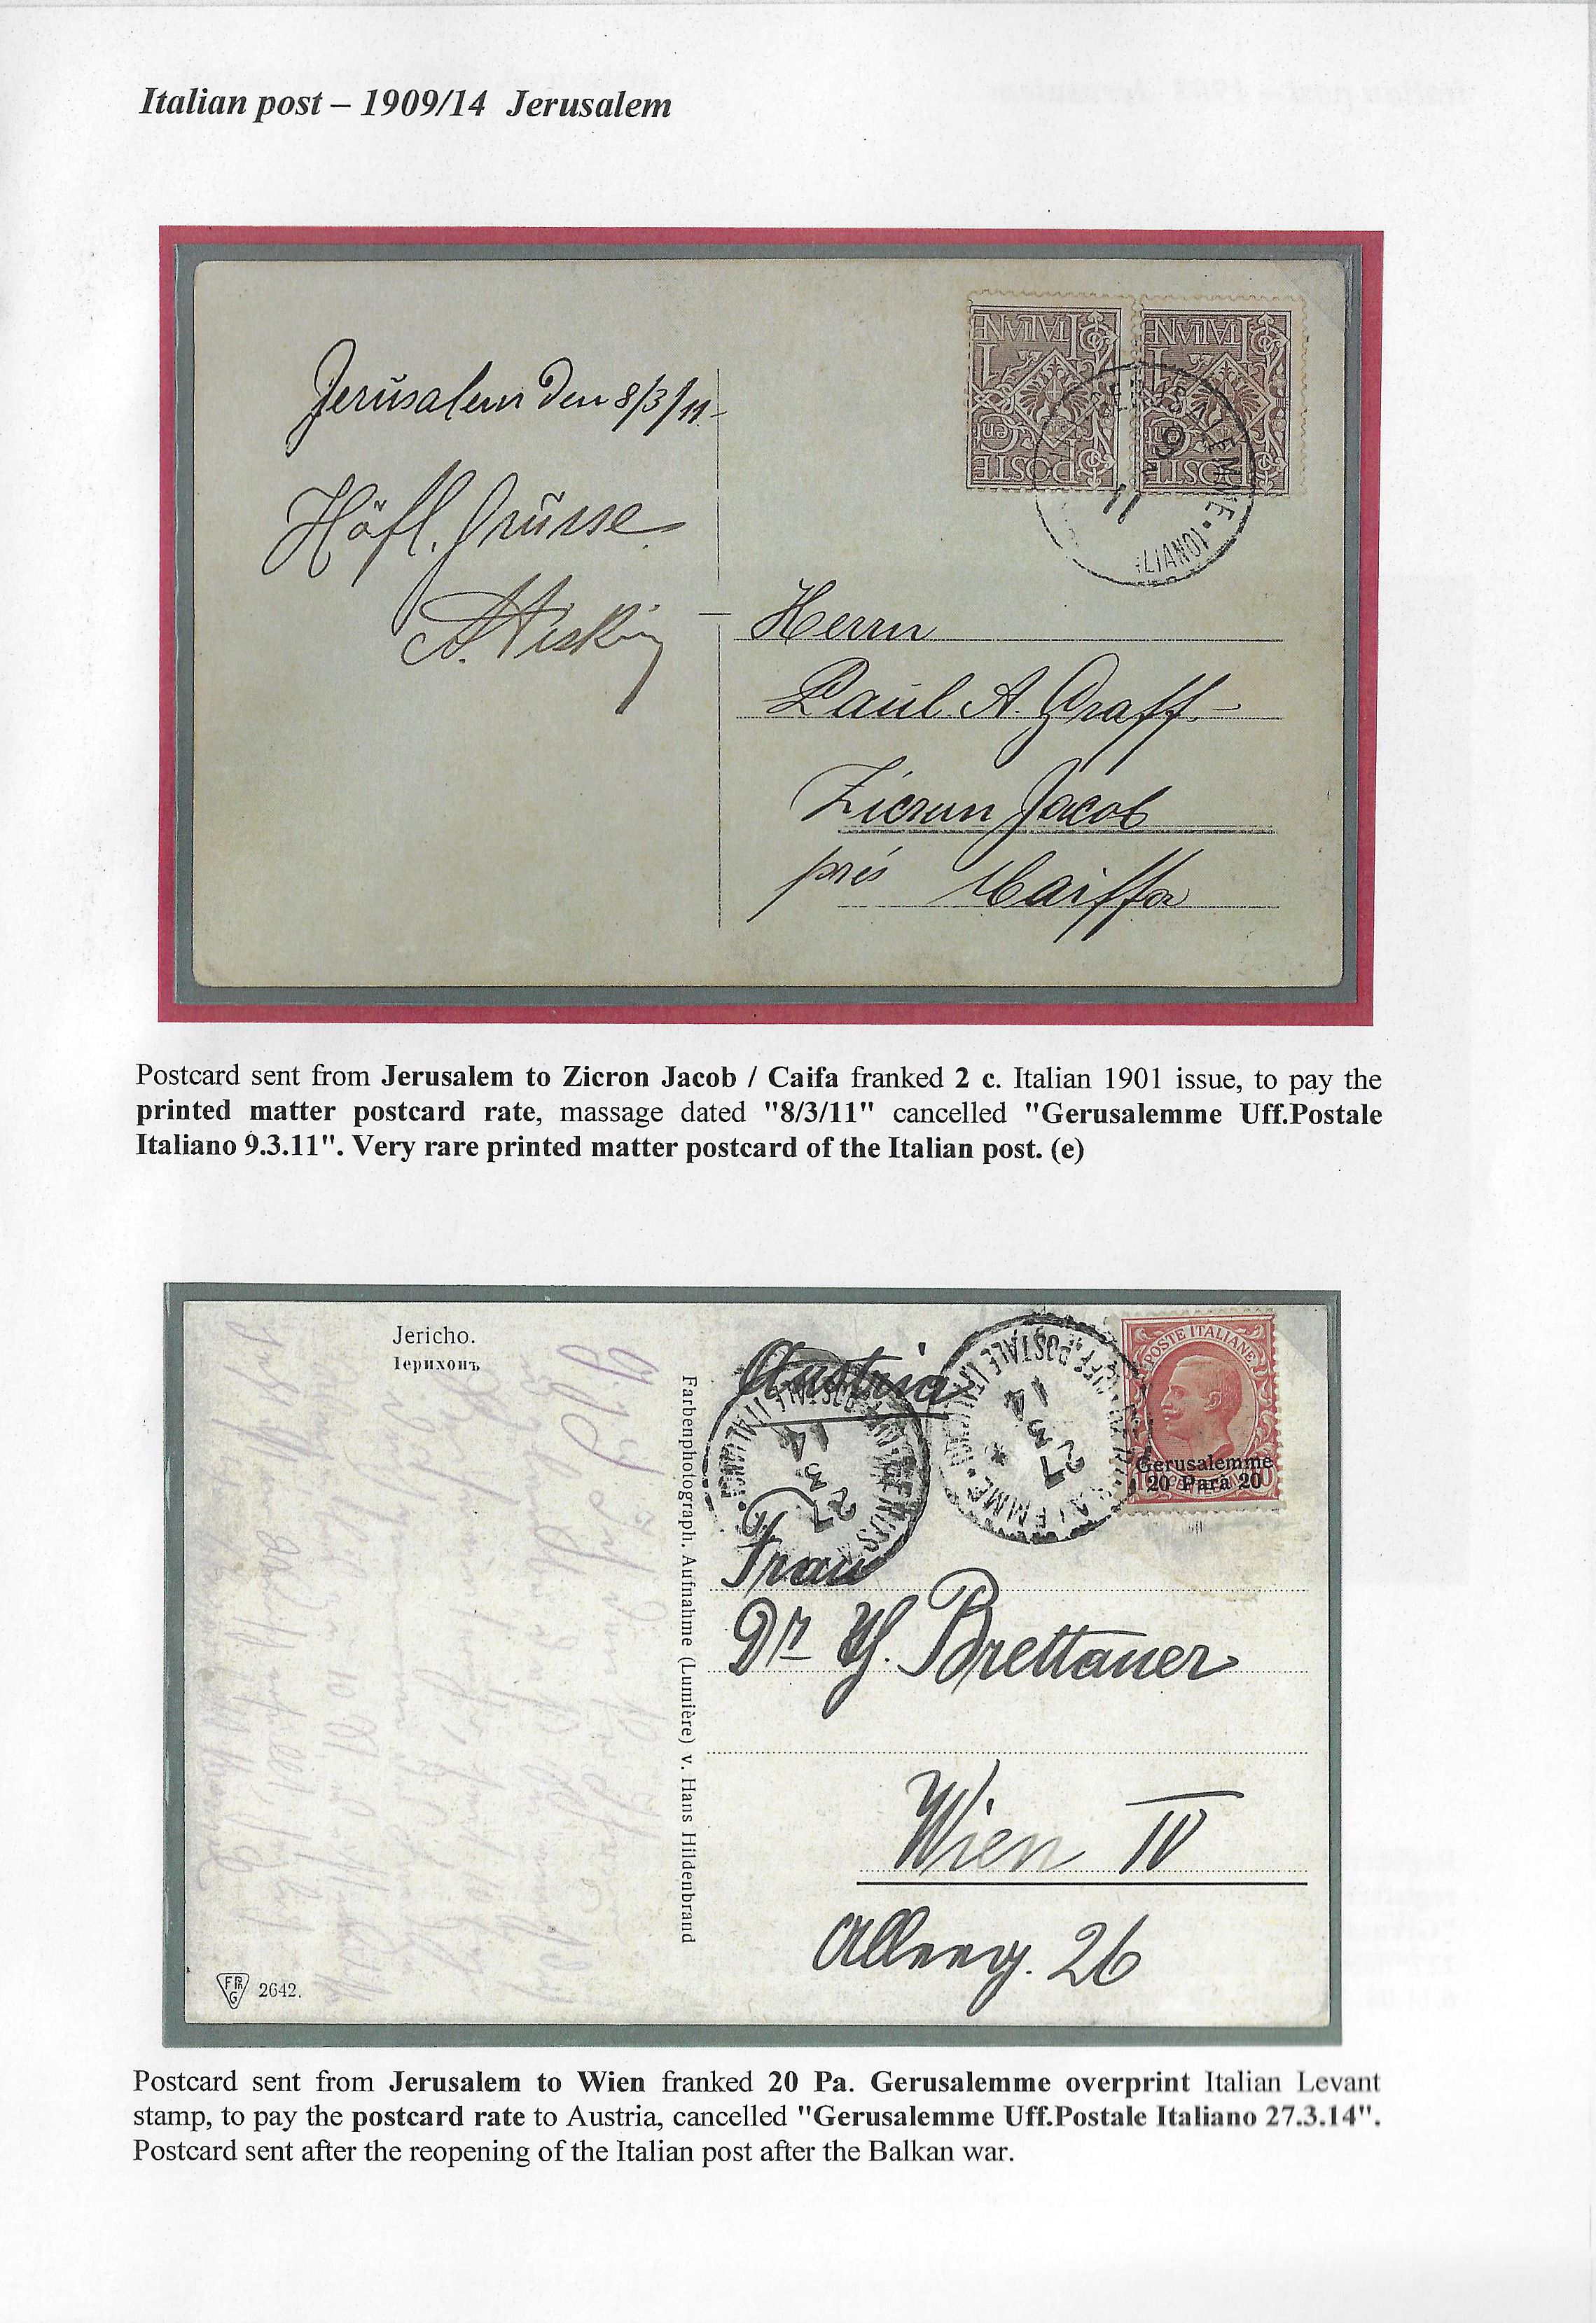 Italian post – 1909/14 Jerusalem
Jerusalem den 8/3/11-
Höfl. Grüsse
POSTE ITALIANE
Cent 1
POSTE ITALIANE
Cent 1
GERUSALEMME • LIANO)
9
3
11
Herrn
Paul. A. Graff.-
Zicron Jacob
près Caiffa
Postcard sent from Jerusalem to Zicron Jacob / Caifa franked 2 c. Italian 1901 issue, to pay the
printed matter postcard rate, massage dated "8/3/11" cancelled "Gerusalemme Uff.Postale
Italiano 9.3.11". Very rare printed matter postcard of the Italian post. (e)
Jericho.
Іерихонъ
Farbenphotograph. Aufnahme (Lumière) v. Hans Hildenbrand
FPhG 2642.
Austria
27
3
14
27
3
14
POSTE ITALIANE
Gerusalemme
20 Para 20
Frau
Dr H. Brettauer
Wien IV
Alleeg. 26
Postcard sent from Jerusalem to Wien franked 20 Pa. Gerusalemme overprint Italian Levant
stamp, to pay the postcard rate to Austria, cancelled "Gerusalemme Uff.Postale Italiano 27.3.14".
Postcard sent after the reopening of the Italian post after the Balkan war.